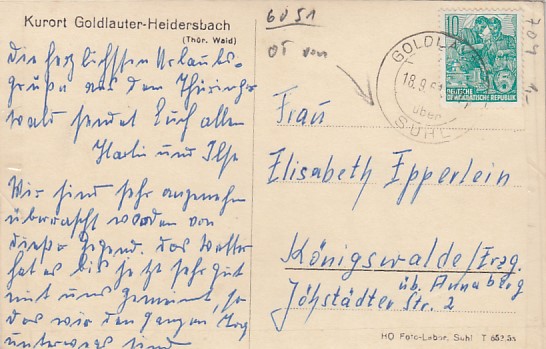 Kurort Goldlauter-Heidersbach
(Thür. Wald)
Die herzlichsten Urlaubs-
grüße aus dem Thüringer
wald sendet Euch allen
und Ilse
Wir sind sehr angenehm
überrascht worden von
dieser Gegend. Das Wetter
hat es bis jetzt sehr gut
mit uns gemeint, so
das wir den ganzen Tag
unterwegs sind
6051
OT von
704
GOLDLAU
18.9.5
über
SUHL
10
DEUTSCHE
DEMOKRATISCHE REPUBLIK
Frau
Elisabeth Epperlein
Königswalde/Erzg.
üb. Annaberg
Jöhstädter Str. 2
HO Foto-Labor, Suhl T 652.55